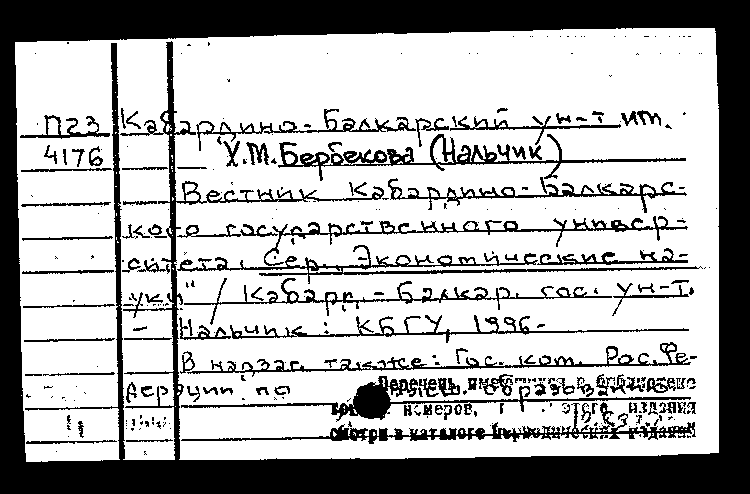 П23 Кабардино-Балкарский ун-т им.
4176 Х.М. Бербекова (Нальчик)
Вестник Кабардино-Балкарс-
кого государственного универ-
ситета. Сер. „Экономические на-
уки" / Кабард.-Балкар. гос. ун-т.
– Нальчик: КБГУ, 1996-
В надзаг. также: Гос. ком. Рос. Фе-
дерации по высш. образованию
Перечень имеющихся в библиотеке
номеров, этого издания
смотри в каталоге периодических изданий